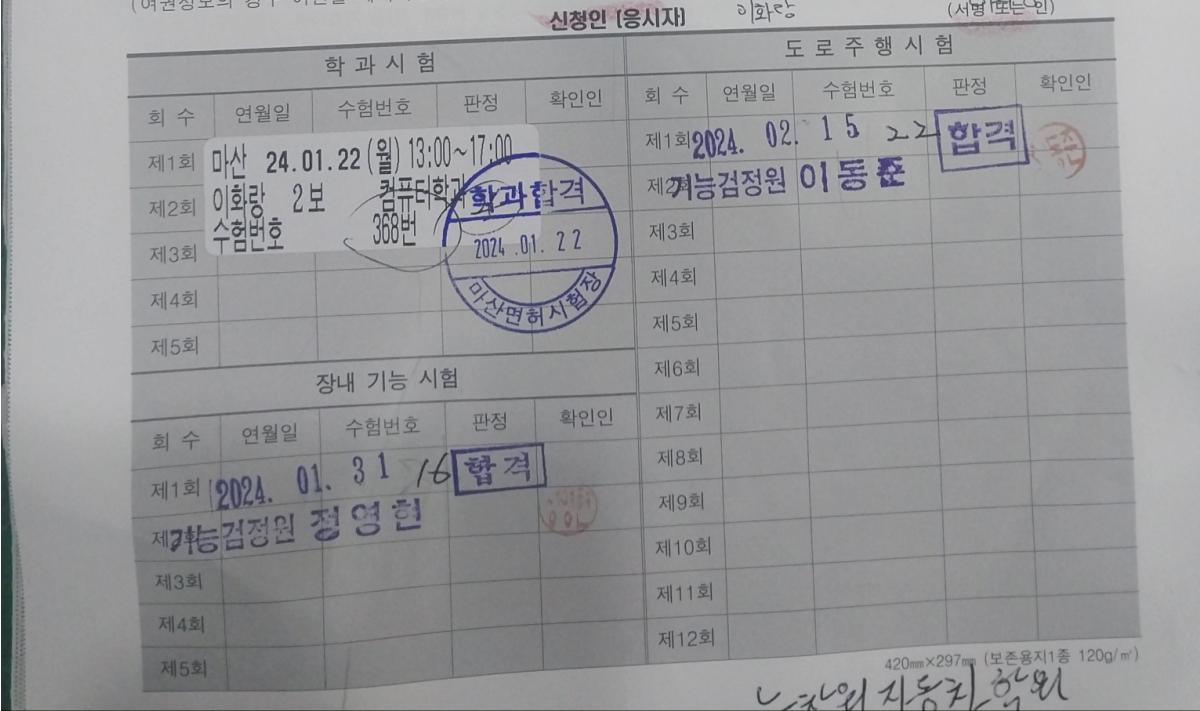 신청인 [응시자] 이화랑 (서명 또는 인)
학 과 시 험
회 수 연월일 수험번호 판정 확인인
제1회 마산 24.01.22(월) 13:00~17:00
제2회 이화랑 2보 컴퓨터학과
제3회 수험번호 368번
학과합격
2024.01.22
마산면허시험장
제4회
제5회
장내 기능 시험
회 수 연월일 수험번호 판정 확인인
제1회 2024. 01. 31 16 합격
제2회 기능검정원 정영현
제3회
제4회
제5회
도 로 주 행 시 험
회 수 연월일 수험번호 판정 확인인
제1회 2024. 02. 15 22 합격
제2회 기능검정원 이동준
제3회
제4회
제5회
제6회
제7회
제8회
제9회
제10회
제11회
제12회
420㎜×297㎜ (보존용지1종 120g/㎡)
자동차 학원